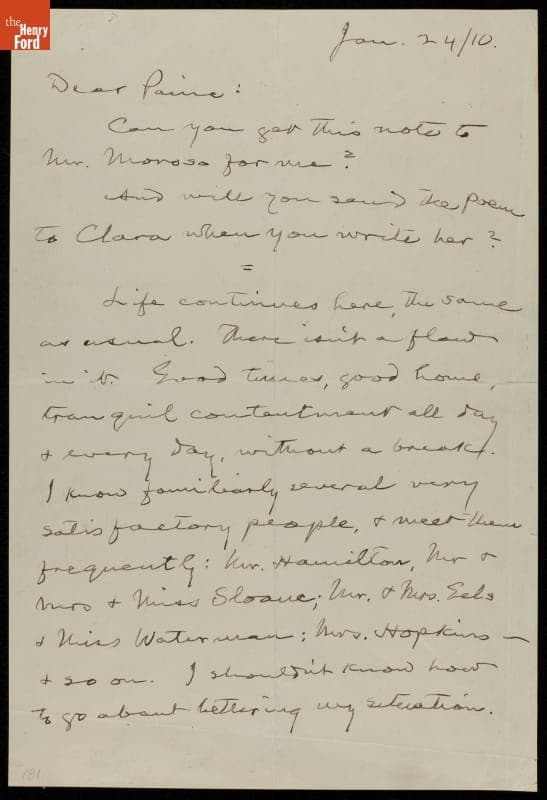 the
Henry
Ford
Jan. 24/10.
Dear Paine:
Can you get this note to
Mr. Moroso for me?
And will you send the poem
to Clara when you write her?
=
Life continues here, the same
as usual. There isn't a flaw
in it. Good times, good home,
tranquil contentment all day
& every day, without a break.
I know familiarly several very
satisfactory people, & meet them
frequently: Mr. Hamilton, Mr &
Mrs & Miss Sloane; Mr. & Mrs. Eels
& Miss Waterman; Mrs. Hopkins —
& so on. I shouldn't know how
to go about bettering my situation.
131